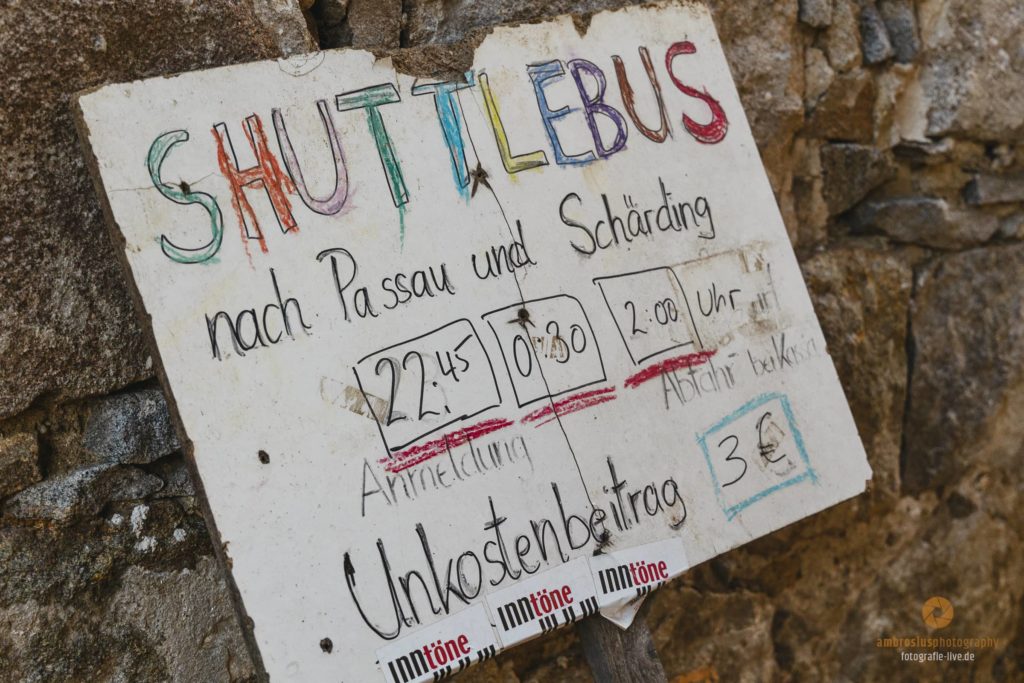 SHUTTLEBUS
nach Passau und Schärding
22:45 0:30 2:00 Uhr
Abfahrt bei Kassa
Anmeldung
Unkostenbeitrag 3 €
INNtöne INNtöne INNtöne
ambrosiusphotography
fotografie-live.de